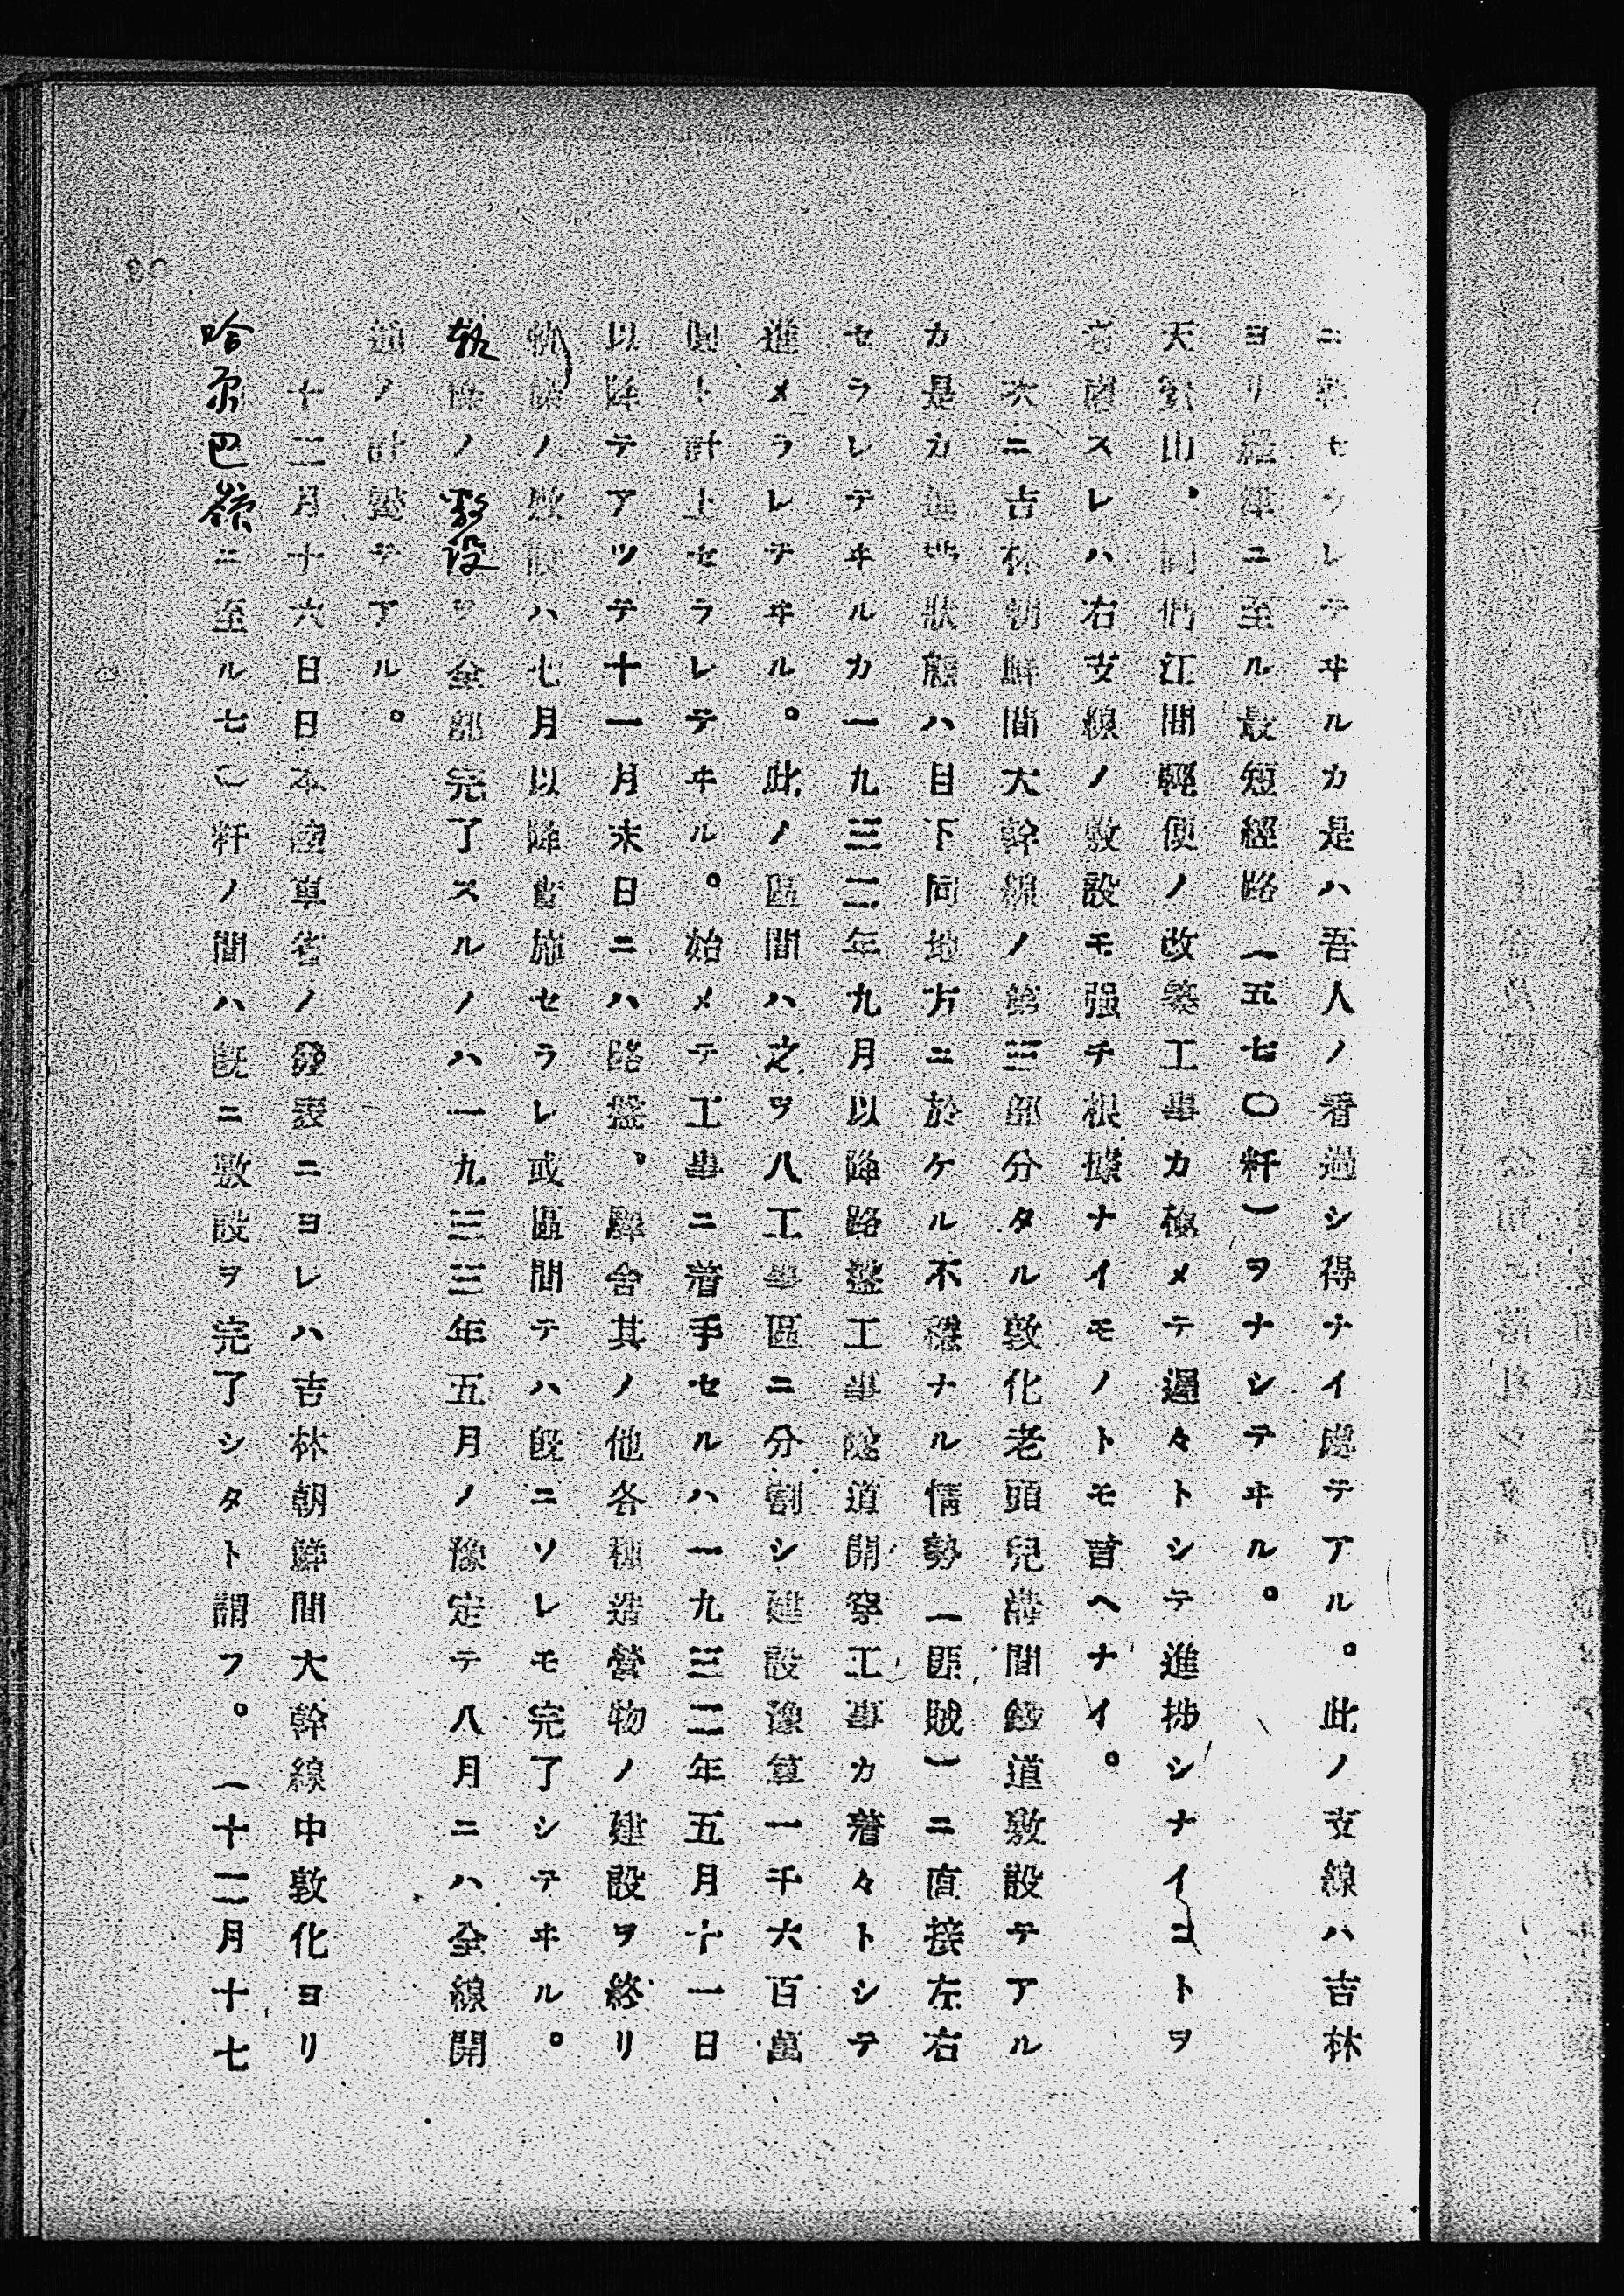 ニ幹セラレテヰルカ是ハ吾人ノ看過シ得ナイ處テアル。此ノ支線ハ吉林
ヨリ羅津ニ至ル最短經路(五七〇粁)ヲナシテヰル。
天寶山、圖們江間輕便ノ改築工事カ極メテ遲々トシテ進捗シナイコトヲ
考慮スレハ右支線ノ敷設モ强チ根據ナイモノトモ言ヘナイ。
次ニ吉林朝鮮間大幹線ノ第三部分タル敦化老頭兒溝間鐵道敷設テアル
カ是カ進捗狀態ハ目下同地方ニ於ケル不穩ナル情勢(匪賊)ニ直接左右
セラレテヰルカ一九三二年九月以降路盤工事隧道開穿工事カ着々トシテ
進メラレテヰル。此ノ區間ハ之ヲ八工事區ニ分割シ建設豫算一千六百萬
圓ト計上セラレテヰル。始メテ工事ニ着手セルハ一九三二年五月十一日
以降テアツテ十一月末日ニハ路盤、驛舍其ノ他各種造營物ノ建設ヲ終リ
軌條ノ敷設ハ七月以降實施セラレ或區間テハ旣ニソレモ完了シテヰル。
軌條ノ敷設ヲ全部完了スルノハ一九三三年五月ノ豫定テ八月ニハ全線開
通ノ計畫テアル。
十二月十六日日本陸軍省ノ發表ニヨレハ吉林朝鮮間大幹線中敦化ヨリ
哈爾巴嶺ニ至ル七〇粁ノ間ハ旣ニ敷設ヲ完了シタト謂フ。(十二月十七